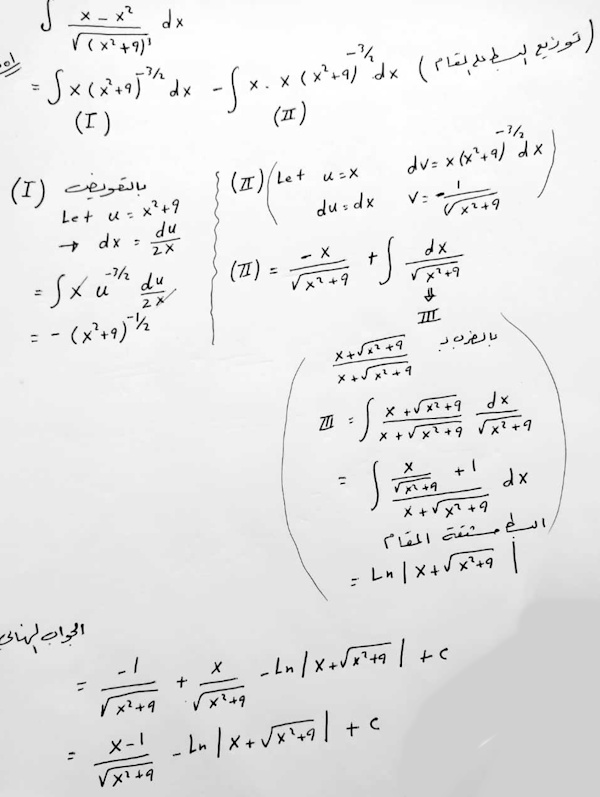 ∫ (x - x²) / √((x²+9)³) dx
= ∫ x (x²+9)^(-3/2) dx - ∫ x . x (x²+9)^(-3/2) dx (توزيع البسط على المقام)
(I) (II)
(I) بالتعويض
Let u = x²+9
→ dx = du/2x
= ∫ x u^(-3/2) du/2x
= - (x²+9)^(-1/2)
(II) (Let u = x dv = x(x²+9)^(-3/2) dx
du = dx v = - 1/√(x²+9) )
(II) = -x/√(x²+9) + ∫ dx/√(x²+9)
⇓
III
(x+√(x²+9))/(x+√(x²+9)) بالضرب بـ
III = ∫ (x+√(x²+9))/(x+√(x²+9)) dx/√(x²+9)
= ∫ (x/√(x²+9) + 1)/(x+√(x²+9)) dx
البسط مشتقة المقام
= Ln | x+√(x²+9) |
الجواب النهائي
= -1/√(x²+9) + x/√(x²+9) - Ln | x+√(x²+9) | + c
= (x-1)/√(x²+9) - Ln | x+√(x²+9) | + c